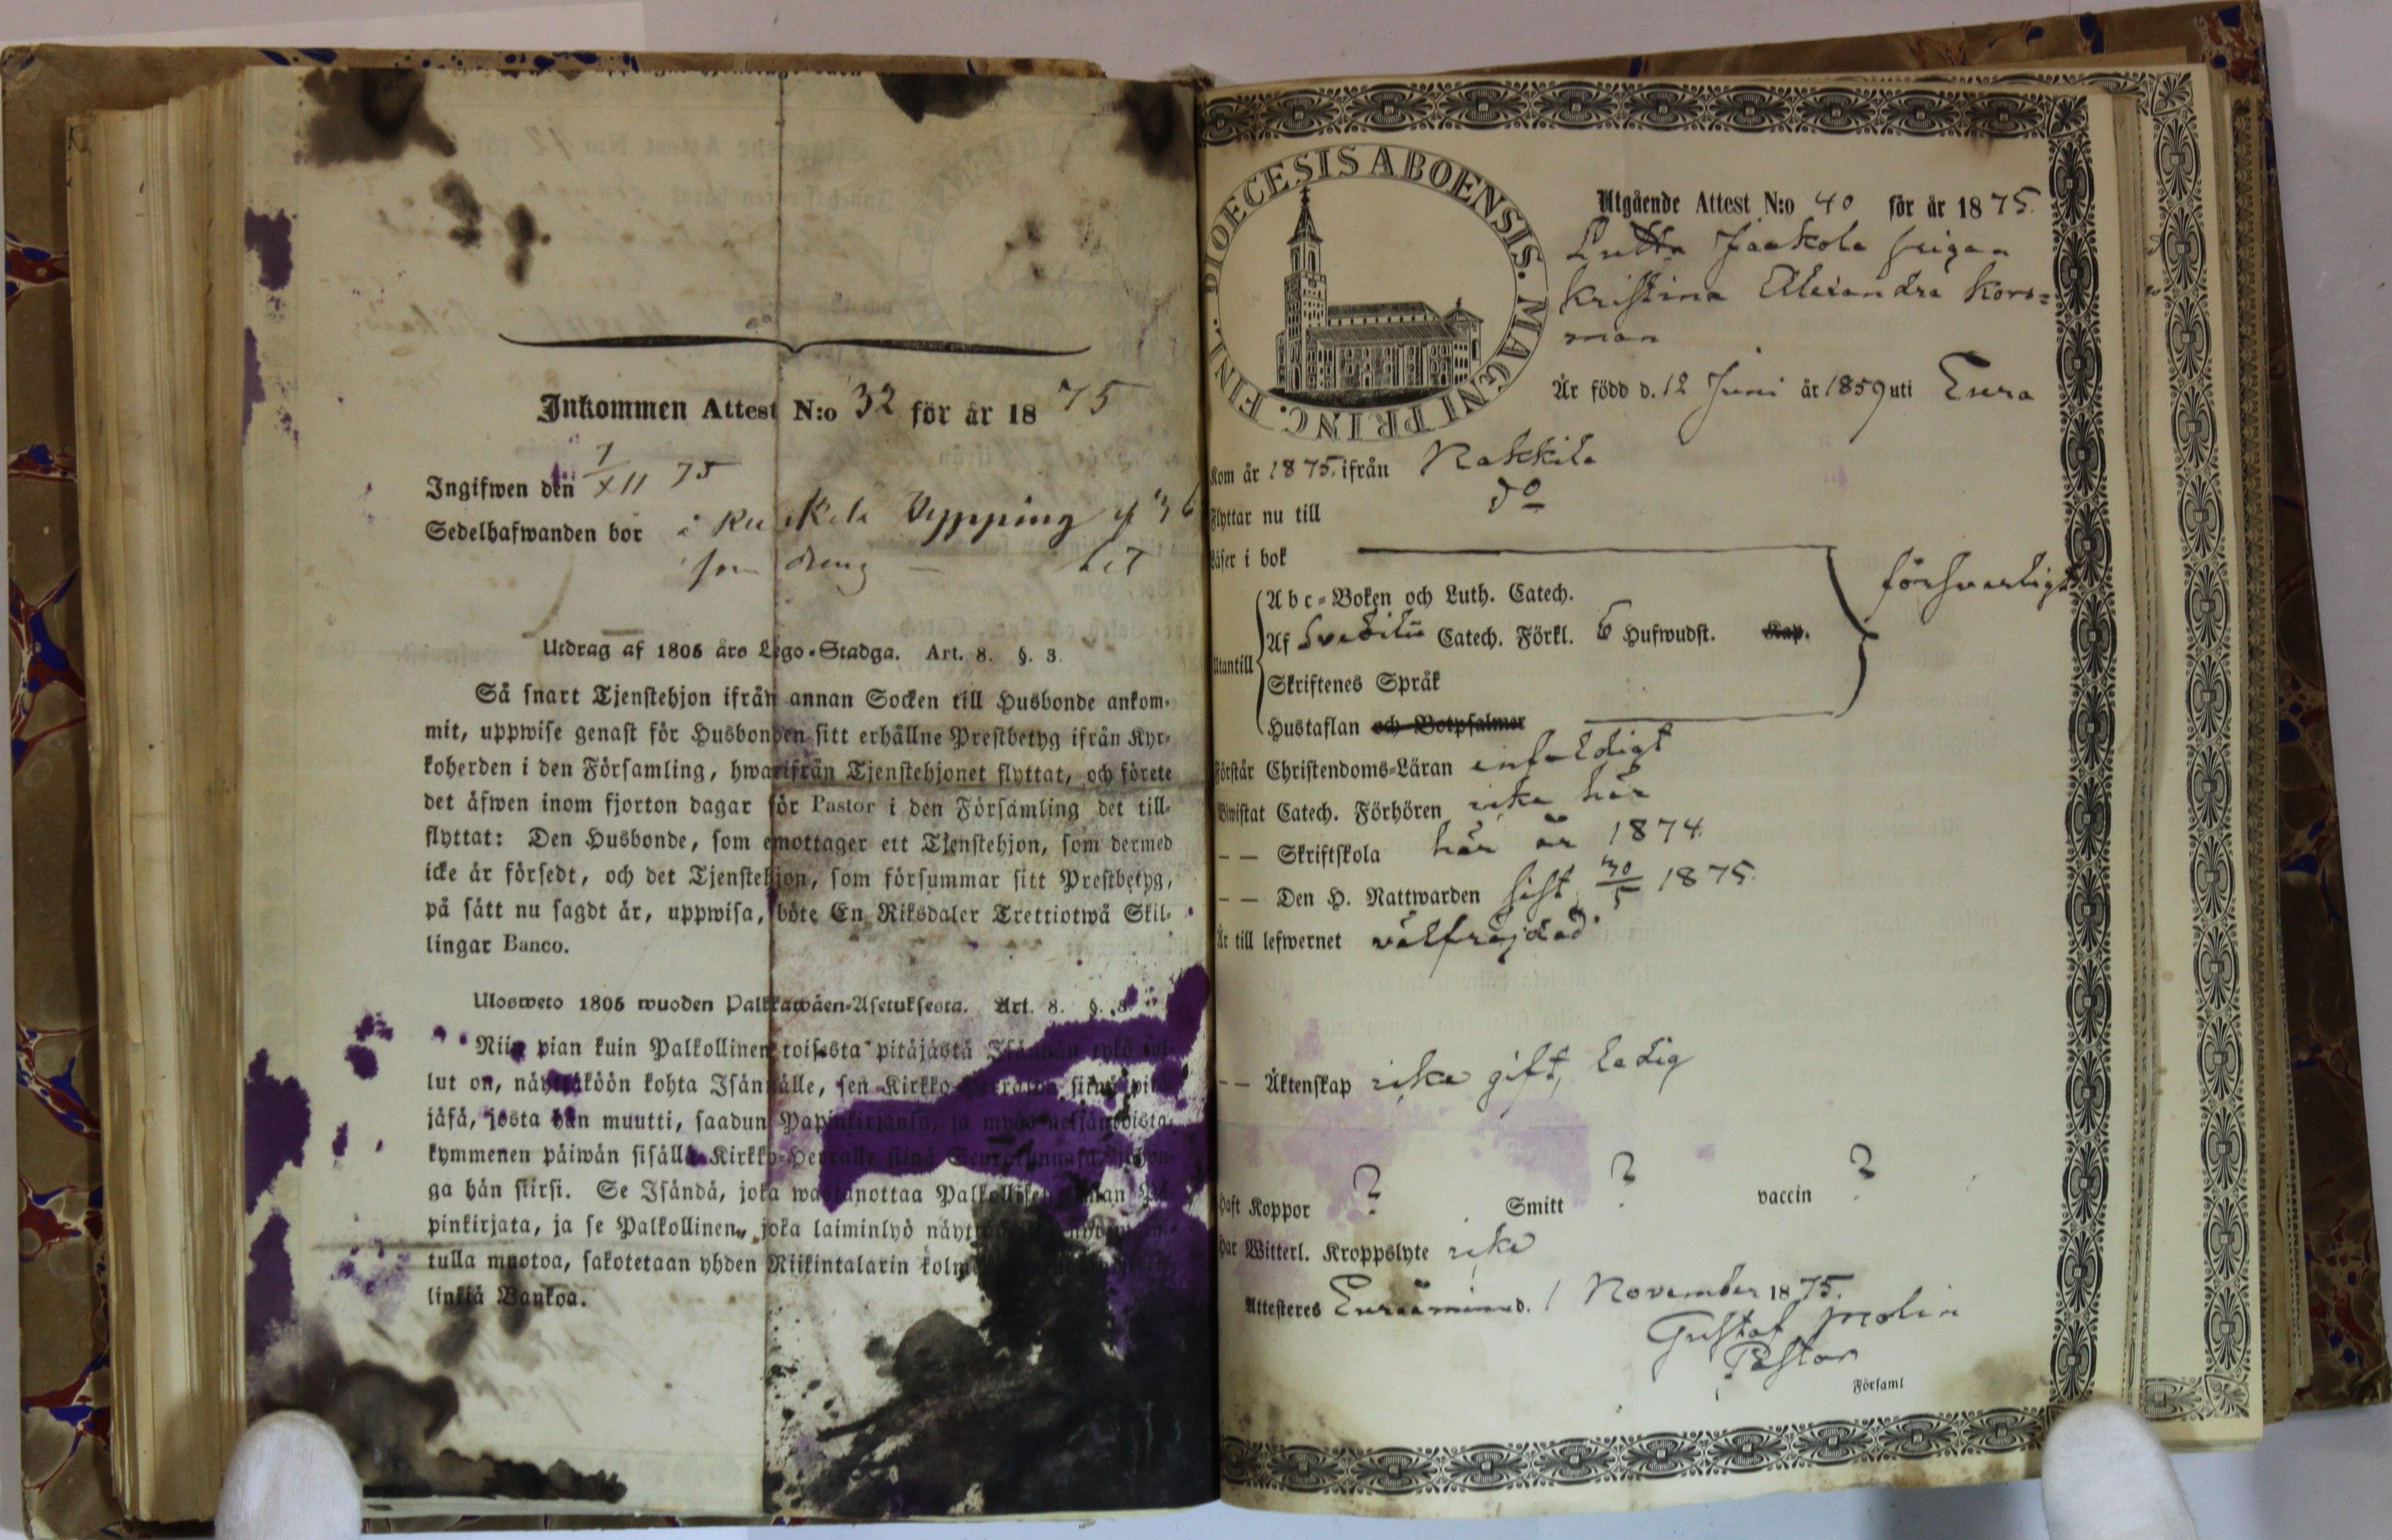 Inkommen Attest N:o 32 för år 1875
Ingifwen den 7/XII 75
Sedelhafwanden bor i
som dreng
Utdrag af 1805 års Lego-Stadga. Art. 8. §. 3.
Så snart Tjenstehjon ifrån annan Socken till Husbonde ankom-
mit, uppwise genast för Husbonden sitt erhållne Prestbetyg ifrån Kyr-
koherden i den Församling, hwarifrån Tjenstehjonet flyttat, och förete
det äfwen inom fjorton dagar för Pastor i den Församling det till-
flyttat: Den Husbonde, som emottager ett Tjenstehjon, som dermed
icke är försedt, och det Tjenstehjon, som försummar sitt Prestbetyg,
på sätt nu sagdt är, uppwisa, böte En Riksdaler Trettiotwå Skil-
lingar Banco.
Ulosweto 1805 wuoden Palkkawäen-Asetuksesta. Art. 8. §. 3.
Niin pian kuin Palkollinen toisesta pitäjästä Isännän tykö tul-
lut on, näyttäköön kohta Isännälle, sen Kirkko-Herralta siinä pitä-
jäsä, josta hän muutti, saadun Papinkirjansa, ja myös neljäntoista-
kymmenen päiwän sisällä Kirkko-Herralle siinä Seurakunnasa, johon-
ga hän siirsi. Se Isändä, joka wastanottaa Palkollisen ilman Pa-
pinkirjata, ja se Palkollinen, joka laiminlyö näyttää
tulla muotoa, sakotetaan yhden Riikintalarin
linkiä Bankoa.
DIOECESIS ABOENSIS. MAGNI PRINC. FINL.
Utgående Attest N:o 40 för år 1875.
Jaakola pigan
Kristina Alexandra Kors=
man
Är född d. 12 Juni år 1859 uti Eura
Kom år 1875. ifrån Nakkila
Flyttar nu till do
Läser i bok
Abc-Boken och Luth. Catech.
försvarligt
Af Svebilii Catech. Förkl. 6 Hufwudst. Kap.
Utantill
Skriftenes Språk
Hustaflan och Botpsalmer
Förstår Christendoms-Läran enfaldigt
Biwistat Catech. Förhören icke här
– – Skriftskola här år 1874.
– – Den H. Nattwarden sist 30/5 1875.
Är till lefwernet välfräjdad.
– – Äktenskap icke gift, ledig
Haft Koppor ? Smitt ? vaccin ?
Har Witterl. Kroppslyte icke
Attesteres Euraåminne d. 1 November 1875.
Gustaf Molin
Pastor
Församl